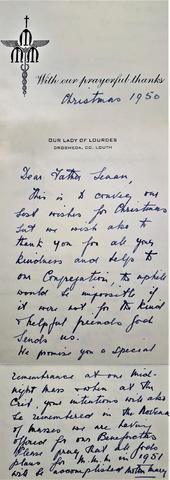 MMM
With our prayerful thanks
Christmas 1950
OUR LADY OF LOURDES
DROGHEDA, CO. LOUTH
Dear Father Senan,
This is to convey our
best wishes for Christmas
but we wish also to
thank you for all your
kindness and help to
our Congregation, to
would be impossible if
it were not for the kind
& helpful friends God
sends us.
We promise you a special
remembrance at our mid-
night Mass & when at the
Crib. Your intentions will also
be remembered in the Novena
of Masses we are having
offered for our Benefactors
Please pray that all God's
plans for M.M.M. in 1951
will be accomplished Mother Mary